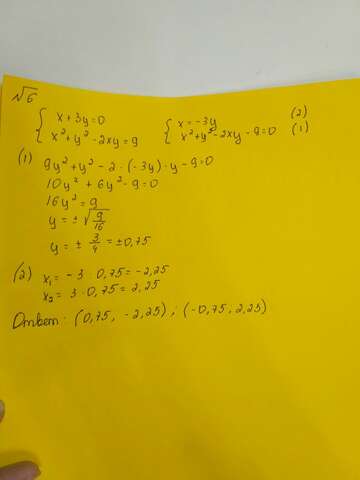 √6
{ x + 3y = 0 { x = -3y (2)
{ x² + y² - 2xy = 9 { x² + y² - 2xy - 9 = 0 (1)
(1) 9y² + y² - 2 · (-3y) · y - 9 = 0
10y² + 6y² - 9 = 0
16y² = 9
y = ± √9/16
y = ± 3/4 = ± 0,75
(2) x₁ = -3 · 0,75 = -2,25
x₂ = 3 · 0,75 = 2,25
Ответ: (0,75, -2,25) ; (-0,75, 2,25)